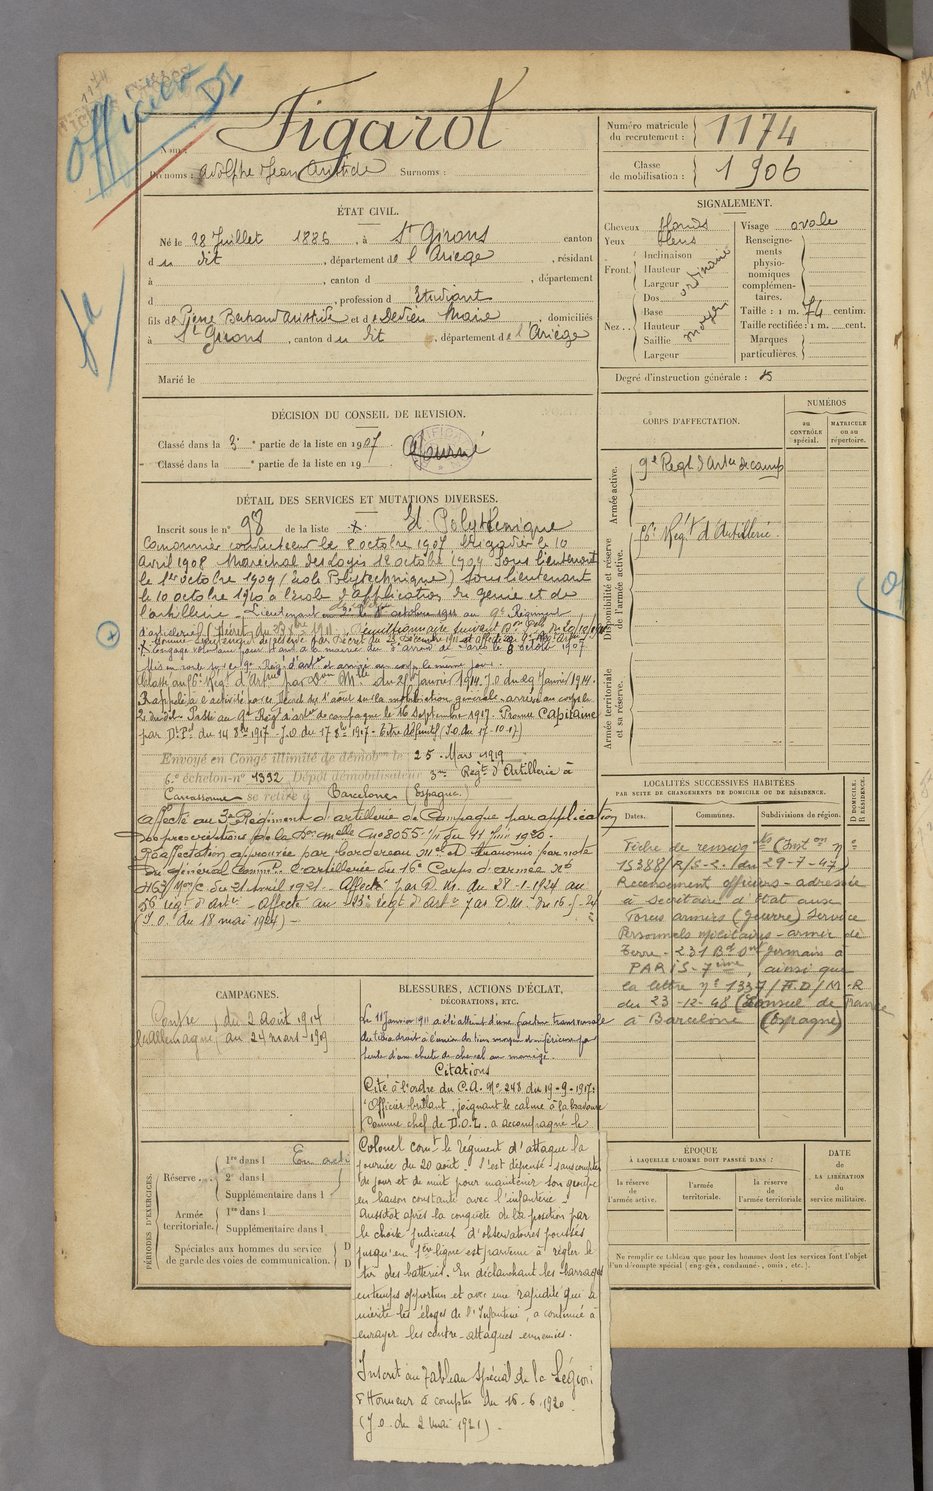 1174
officier
D1
Nom :
Figarol
Prénoms : Adolphe Jean Aristide Surnoms :
Numéro matricule du recrutement : 1174
Classe de mobilisation : 1906
ÉTAT CIVIL.
Né le 28 Juillet 1886, à St Girons canton
du dit, département de l'Ariège, résidant
à , canton d , département
d , profession d Etudiant
fils de Pierre Bertrand Aristide et de Dedieu Marie, domiciliés
à St Girons, canton du dit, département de l'Ariège
Marié le
SIGNALEMENT.
Cheveux blonds
Yeux bleus
Front. Inclinaison
Hauteur ordinaire
Largeur
Nez.. Dos
Base
Hauteur moyen
Saillie
Largeur
Visage ovale
Renseignements physionomiques complémentaires.
Taille : 1 m. 74 centim.
Taille rectifiée : 1 m. cent.
Marques particulières.
Degré d'instruction générale : 5
DÉCISION DU CONSEIL DE REVISION.
Classé dans la 3e partie de la liste en 1907. Ajourné
Classé dans la e partie de la liste en 19
DÉTAIL DES SERVICES ET MUTATIONS DIVERSES.
Inscrit sous le n° 98 de la liste X. Et Polythenique
Canonnier conducteur le 8 octobre 1907 brigadier le 10
avril 1908 Maréchal des Logis 1er octobre 1909 Sous lieutenant
le 1er octobre 1909 (Ecole Polytechnique) Sous lieutenant
le 10 octobre 1910 à l'école d'application du Génie et de
l'artillerie. Lieutenant en 2e le 1er octobre 1911 au 9e Régiment
d'artillerie (Décret du 1911. Démissionnaire suivant
Nommé Lieutenant de réserve par Décret du 23 Décembre 1911 et affecté au 9e Reg. Art
X Engagé volontaire pour 4 ans à la mairie du 5e arrond de Paris le 8 octobre 1907
Mis en route sur le 9e Rég. d'artie et arrivé au corps le même jour.
Classé au 56e Régt d'Artie par Don Mlle du 26 Janvier 1914. J.O du 29 Janvier 1914.
Rappelé à l'activité par le Décret du 1er août sur la mobilisation générale arrivé au corps le
2 du dit. Passé au 9e Régt d'artie de campagne le 16 Septembre 1917. Promu Capitaine
par Dt Pt du 14 8bre 1917 - J.O du 17 8bre 1917 - titre définitif (J.O. du 17-10-17)
Envoyé en Congé illimité de démobon le 25 Mars 1919
6e échelon-no 4332 Dépôt démobilisateur 3me Regt d'Artillerie à
Carcassonne se retire à Barcelone (Espagne)
affecté au 3e Régiment d'artillerie de Campagne par application
des prescriptions de la Don Melle No 8055 du 11 Juin 1920.
Réaffectation approuvée par bordereau Mel et transmis par note
du général Commt l'artillerie du 16e Corps d'armée No
du 21 Avril 1921. Affecté par D. M. du 28-1-1924 au
56 régt d'Artie. Affecté au régt d'Artie par D.M. du 16-5-24
(J.O. du 18 mai 1924)
CORPS D'AFFECTATION.
NUMÉROS
au CONTRÔLE spécial.
MATRICULE ou au répertoire.
Armée active.
9e Regt d'Artie de camp
Disponibilité et réserve de l'armée active.
56e Régt d'Artillerie
Armée territoriale et sa réserve.
LOCALITÉS SUCCESSIVES HABITÉES
PAR SUITE DE CHANGEMENTS DE DOMICILE OU DE RÉSIDENCE.
Dates. Communes. Subdivisions de région.
D DOMICILE. R RÉSIDENCE.
Fiche de renseig (Inst on no
15388/R/S-2. du 29-7-47)
Recensement officiers - adressée
à Secrétaire d'Etat aux
Forces armées (Guerre) Service
Personnels militaires - armée de
Terre - 231 Bd St Germain à
PARIS-7ème, ainsi que
la lettre no 1337/F.D/M-R
du 23-12-48 (Consul de France
à Barcelone (Espagne)
CAMPAGNES.
Contre l'Allemagne du 2 Août 1914
au 24 mars 1919
BLESSURES, ACTIONS D'ÉCLAT,
DÉCORATIONS, ETC.
Le 11 Janvier 1911 a été atteint d'une fracture transversale
du tibia droit à l'union du tiers moyen et inférieur par
suite d'une chute de cheval au manège.
Citations
Cité à l'ordre du C.A. No 248 du 19-9-1917:
"Officier brillant, joignant le calme à la bravoure
Comme chef de D.O.L. a accompagné le
Colonel comt le régiment d'attaque la
journée du 20 août. S'est dépensé sans compter
de jour et de nuit pour maintenir son groupe
en liaison constante avec l'infanterie.
Aussitôt après la conquête de la position par
le choix judicieux d'observatoires poussés
jusqu'en 1ère ligne est parvenu à régler le
tir des batteries. En déclanchant les barrages
en temps opportun et avec une rapidité qui a
mérité les éloges de l'Infanterie, a continué à
enrayer les contre-attaques ennemies.
Inscrit au Tableau Spécial de la Légion
d'Honneur à compter du 16-6-1920
(J.O. du 2 mai 1921).
PÉRIODES D'EXERCICES.
Réserve.... 1re dans l
2e dans l
Supplémentaire dans l
Armée territoriale. 1re dans l
Supplémentaire dans l
Spéciales aux hommes du service de garde des voies de communication.
ÉPOQUE
À LAQUELLE L'HOMME DOIT PASSER DANS :
la réserve de l'armée active.
l'armée territoriale.
la réserve de l'armée territoriale
DATE de LA LIBÉRATION du service militaire.
Ne remplir ce tableau que pour les hommes dont les services font l'objet
d'un décompte spécial (engagés, condamnés, omis, etc.).